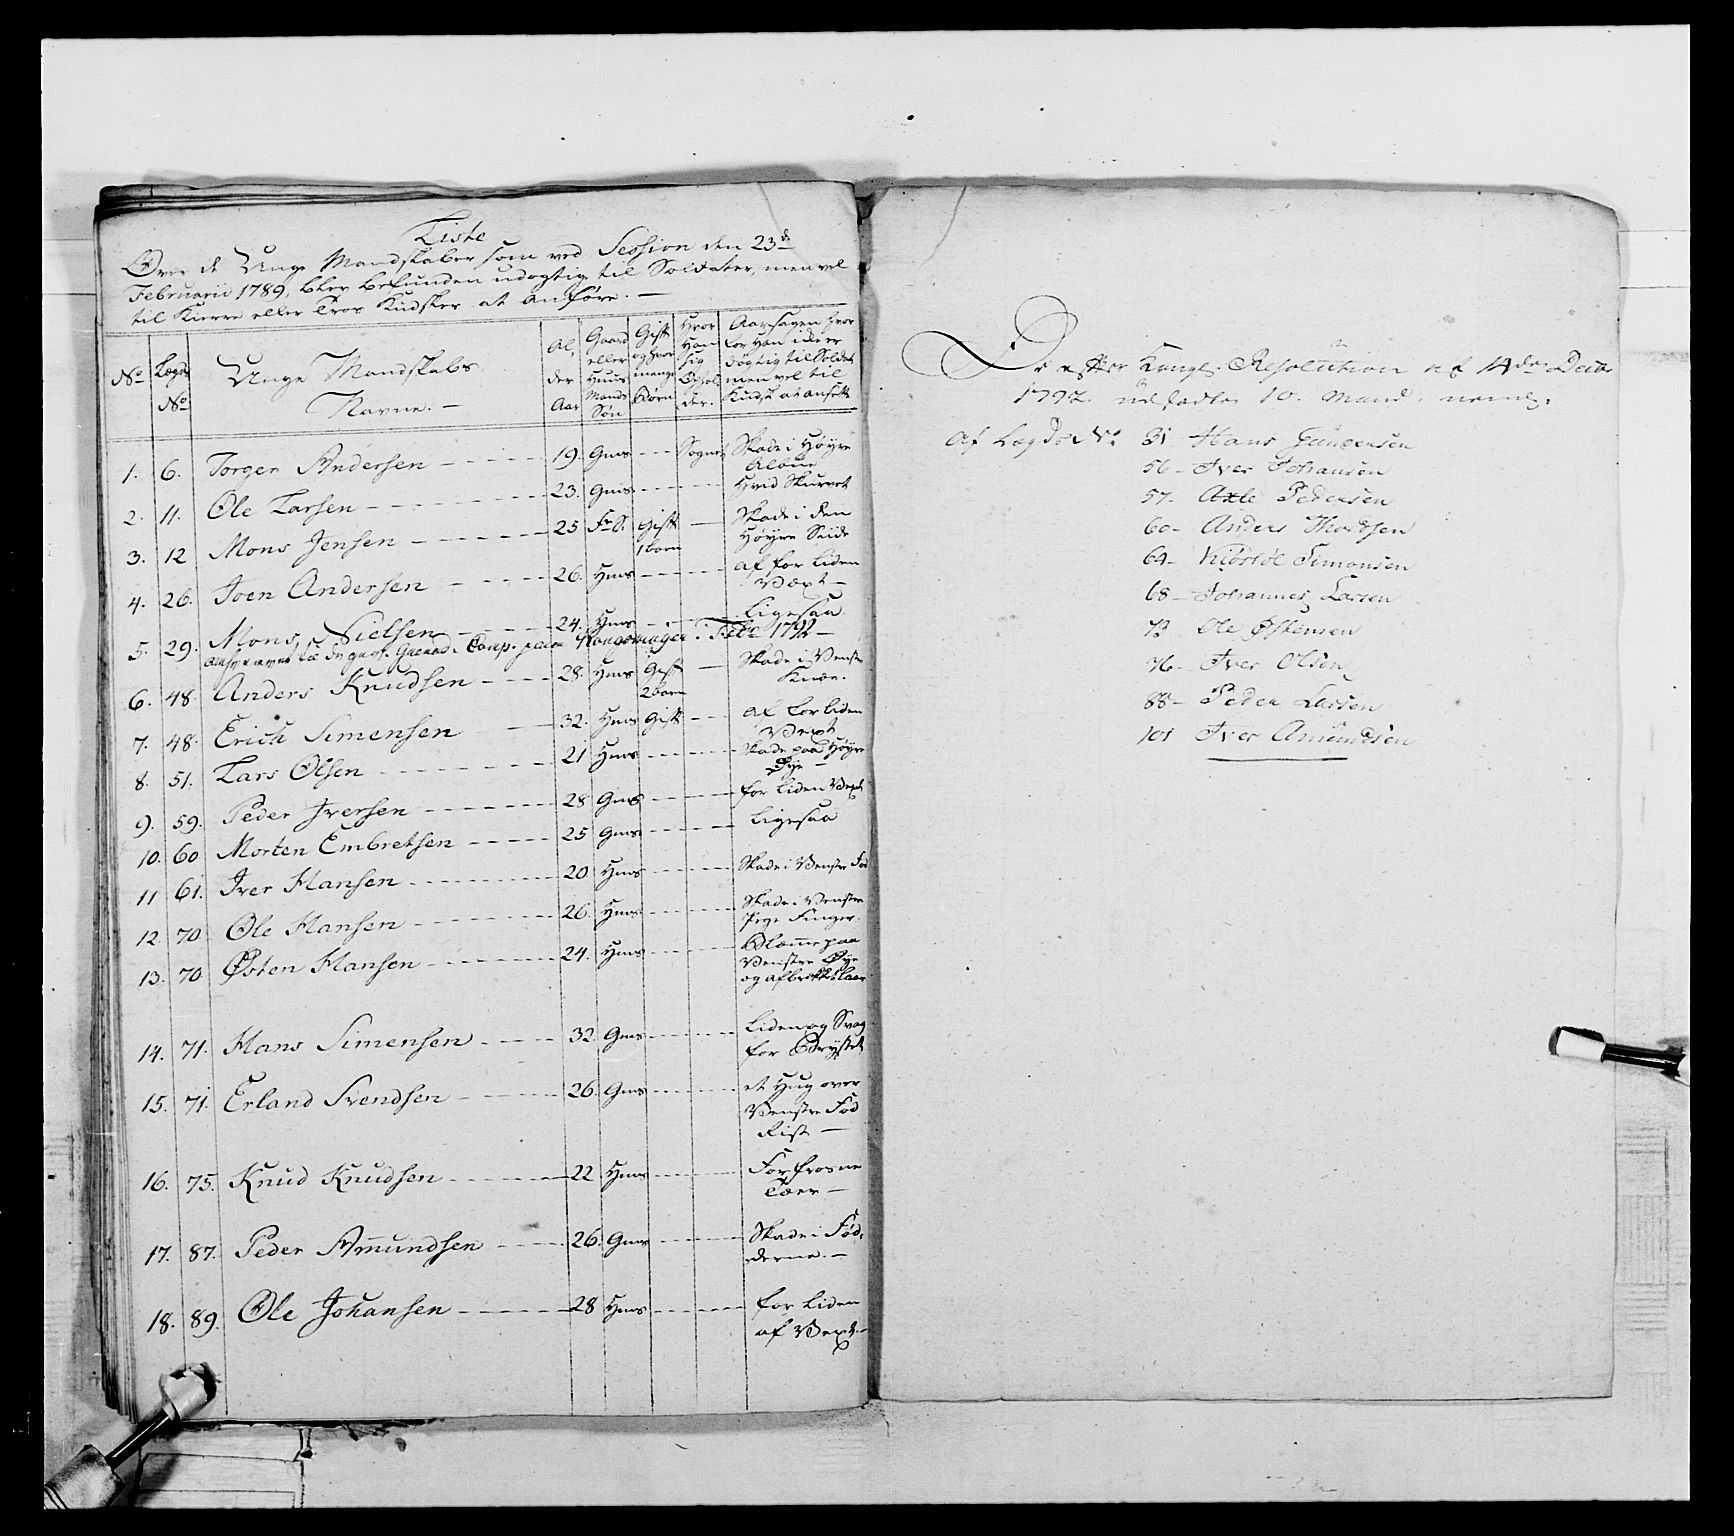 Liste
Over de Unge Mandskaber som ved Session den 23de
Februarii 1789, blev befunden udygtig til Soldater, men vel
til Kierre eller Tros Kudsker at anføre. —
No | Lægds No | Unge Mandskabs Navne. — | Al, der Aar | Gaard eller Huus Mands Søn | Gift og hvor mange Børn | Hvor Han sig Ophol, der. | Aarsagen hvor for Han ide er dygtig til Soldat men vel til Kudsk at ansette
1. 6. Torger Andersen 19. Gms Sognet Skade i Høyre
2. 11. Ole Larsen 23. Gms Hvid Skurvet
3. 12 Mons Jensen 25 Gift 1 barn Skade i den Høyre Siide
4. 26. Joen Andersen 26. Hms af for liden Væxt —
5. 29. Mons Nielsen 24. Hms Ligesaa
Comp. Kongsvinger i Febr 1792 —
6. 48 Anders Knudsen 28. Hms Gift 2 barn Skade i Venstre Knæe.
7. 48. Erich Simensen 32. Hms Gift af for liden Vext
8. 51. Lars Olsen 21 Hms Skade paa Høyre Øye —
9. 59. Peder Iversen 28 Gms for liden Vext
10. 60 Morten Embretsen 25 Gms Ligesaa
11 61. Iver Hansen 20 Hms Skade i Venstre Fod
12. 70 Ole Hansen 26. Hms Skade i Venstre Pege Finger.
13. 70 Østen Hansen 24. Hms Blæmme paa Venstre Øye og
14. 71. Hans Simensen 32. Gms Liden og Svag for Brystet
15. 71. Erland Svendsen 26. Gms et Hug over Venstre Fod Rist —
16. 75. Knud Knudsen 22 Hms Forfrosne Tæer —
17. 87. Peder Amundsen 26. Gms Skade i Fød, derne. —
18. 89. Ole Johansen 28 Hms for liden af Vext. —
Er efter Kongl. Resolution af 14de Decbr
1792. udsadte 10. Mand. neml:
Af Lægds No 31 Hans
56 — Iver Johansen
57 — Axle Pedersen
60 — Anders Thordsen
64 — Simonsen
68 — Johannes Larsen
73 Ole Østensen
76 — Iver Olsen
88 — Peder Larsen
101 Iver Amundsen